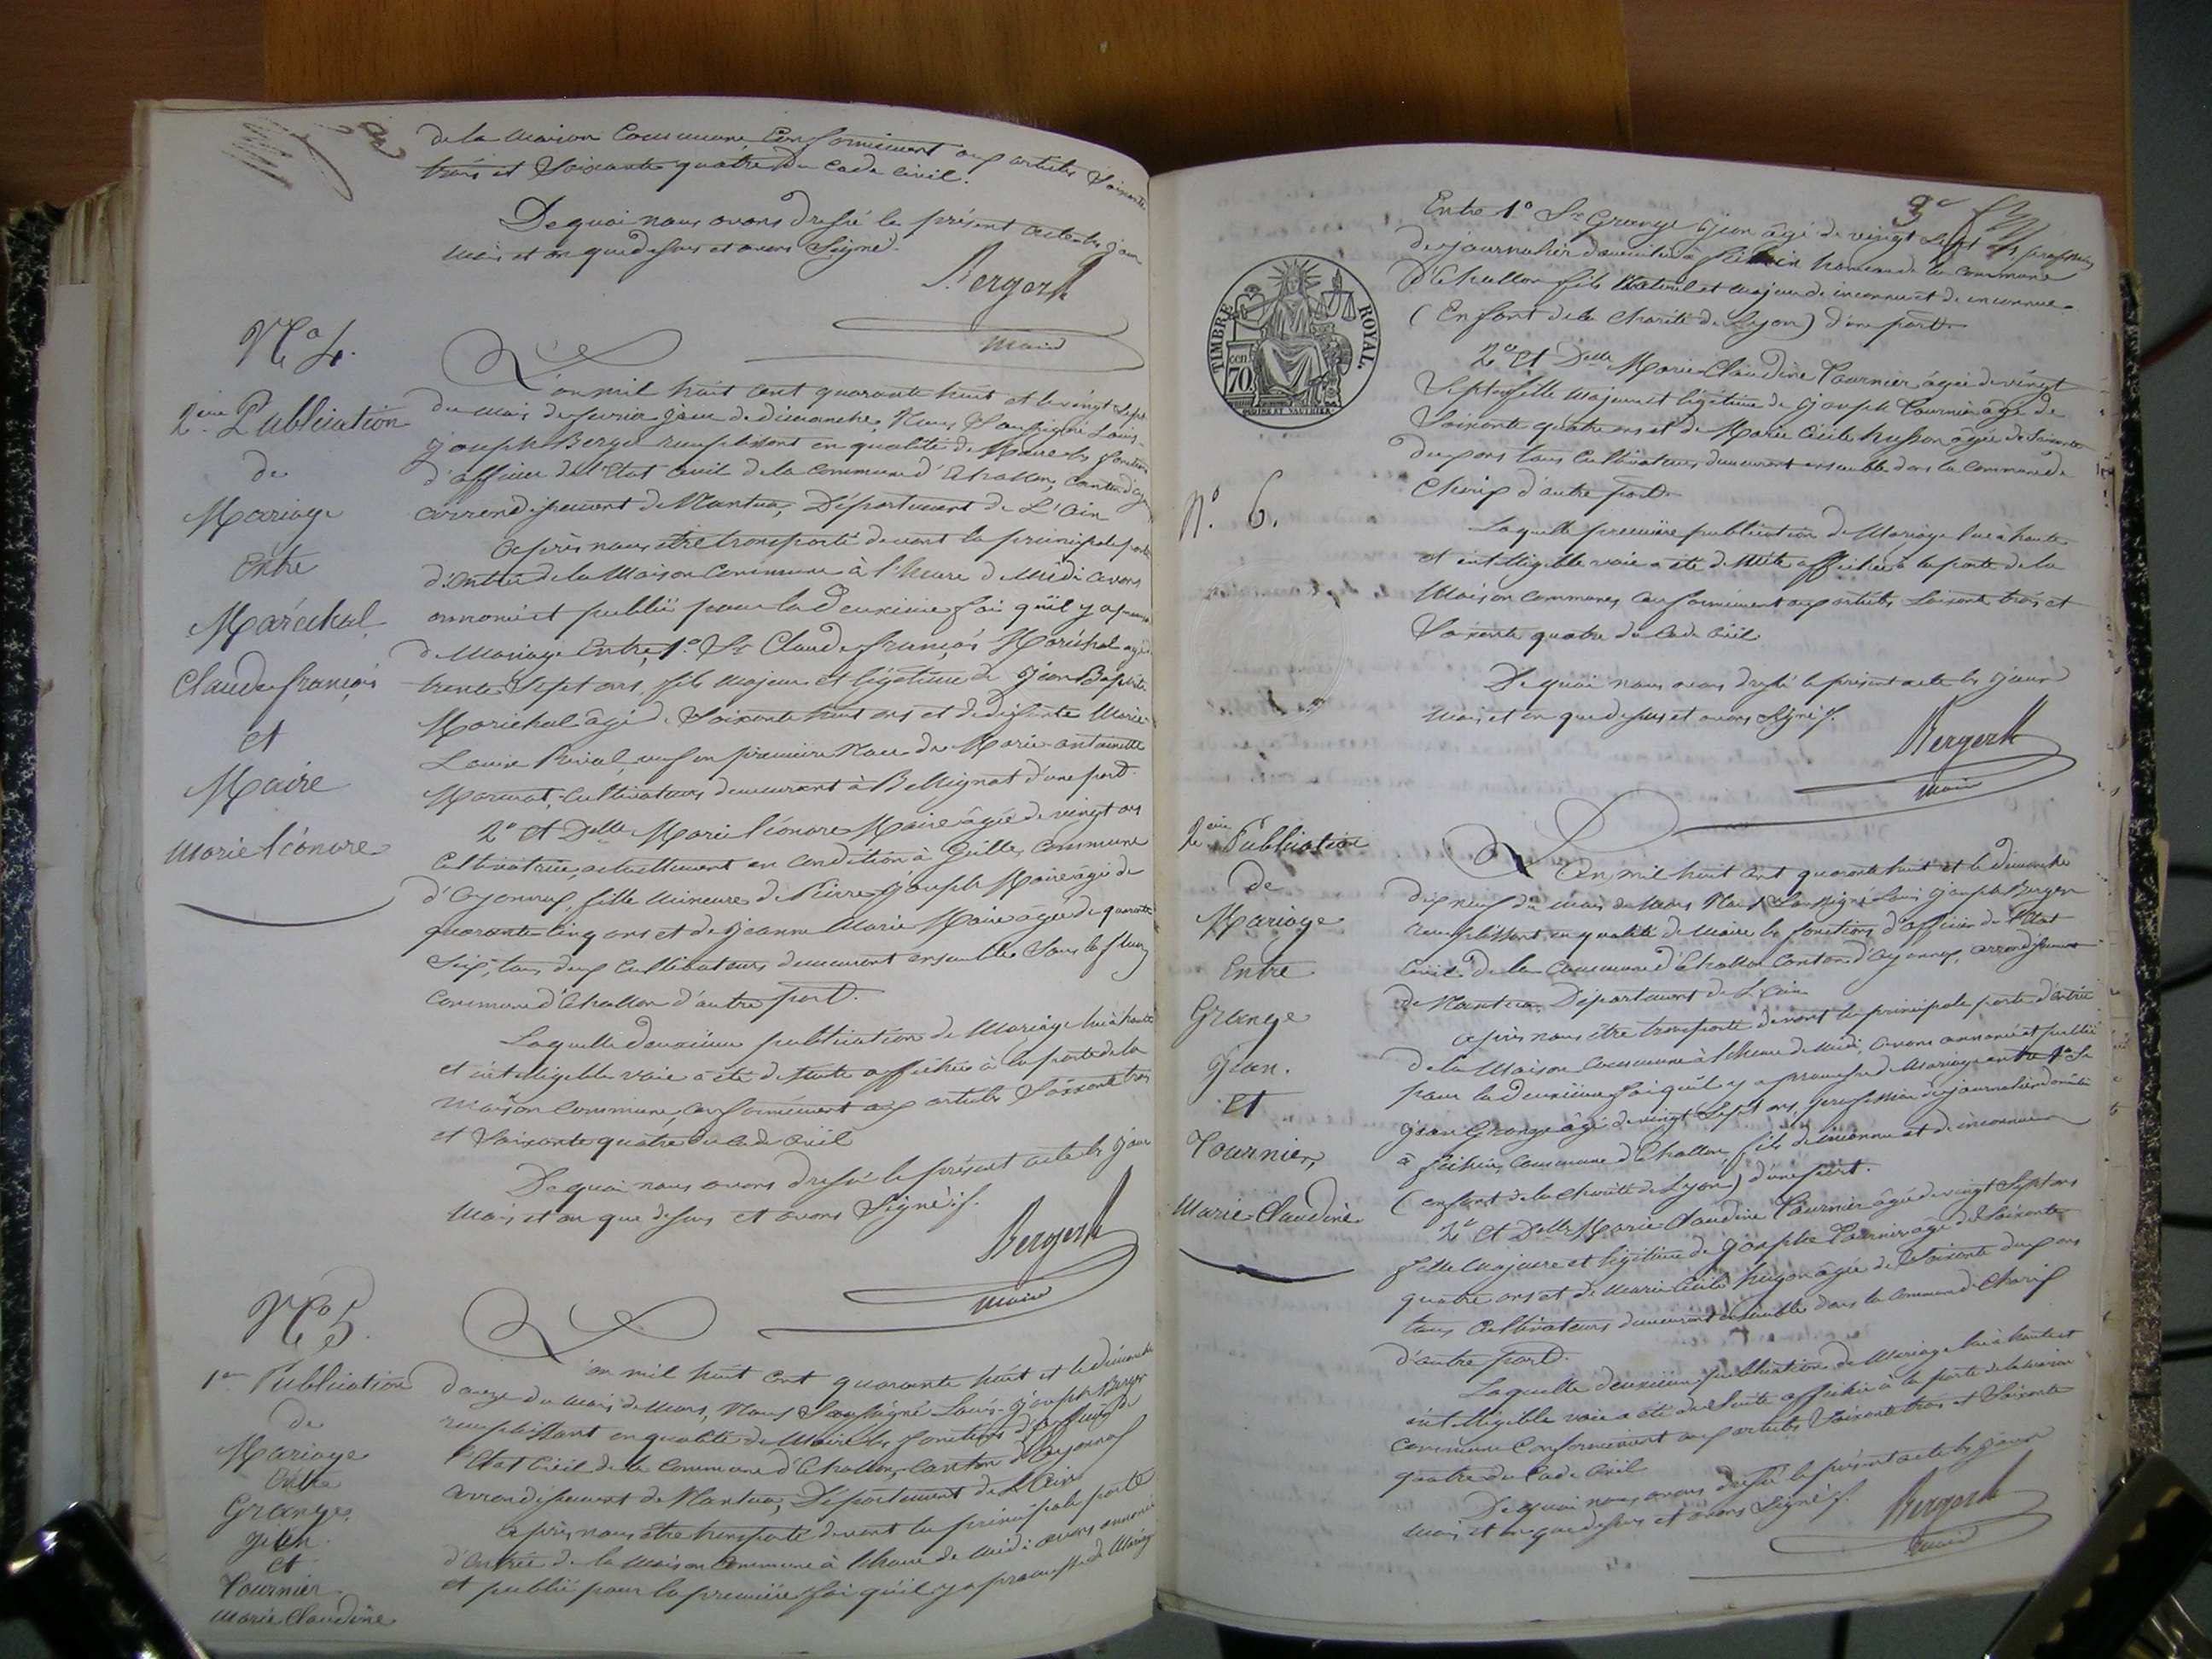 de la maison Commune, Conformément aux articles Soixante
trois et Soixante quatre du Code Civil.
De quoi nous avons dressé le présent acte les jour
mois et an que dessus et avons Signé.
Berger
Maire
N.º 4.
2.ème Publication
de
Mariage
Entre
Maréchal
Claude françois
et
Maire
Marie léonore
L'an mil huit cent quarante huit et le vingt sept
du mois de fevrier jour de dimanche, Nous Soussigné Louis
Joseph Berger remplissant en qualité de Maire les fonctions
d'officier de l'Etat civil de la commune d'Echallon, Canton d'Oyonnax
arrondissement de Nantua, Département de L'Ain
après nous être transporté devant la principale porte
d'entrée de la Maison Commune à l'heure de Midi avons
annoncé et publié pour la deuxième fois qu'il y a promesse
de Mariage Entre, 1.º Sr Claude françois Maréchal agé
trente Sept ans, fils majeur et légitime de Jean Baptiste
Maréchal âgé de Soixante huit ans et de défunte Marie
Louise Rival, veuf en première Noce de Marie antoinette
cultivateurs demeurant à Bellignat d'une part.
2.º et Delle Marie léonore Maire âgée de vingt ans
cultivatrice, actuellement en condition à Gilles, Commune
d'Oyonnax, fille Mineure de Pierre Joseph Maire âgé de
quarante cinq ans et de Jeanne Marie Maire âgée de quarante
Six, tous deux Cultivateurs demeurant ensemble Sous le
Commune d'Echallon d'autre part.
Laquelle deuxième publication de Mariage lue à haute
et intelligible voix a été de Suite affichée à la porte de la
maison Commune, conformément aux articles Soixante trois
et Soixante quatre du Code Civil
De quoi nous avons dressé le présent acte les jour
Mois et an que dessus et avons Signé
Berger
Maire
N.º 5.
1.ère Publication
de
Mariage
Entre
Grange
Jean
et
Tournier
Marie Claudine
L'an mil huit cent quarante huit et le dimanche
douze du mois de Mars, Nous Soussigné Louis Joseph Berger
remplissant en qualité de Maire les fonctions d'officier de
l'Etat Civil de la Commune d'Echallon, Canton d'Oyonnax
arrondissement de Nantua, Département de L'Ain
après nous être transporté devant la principale porte
d'Entrée de la Maison Commune à l'heure de Midi avons annoncé
et publié pour la première fois qu'il y a promesse de Mariage
3
TIMBRE ROYAL.
cen 70
Entre 1.º Sr Grange Jean âgé de vingt Sept ans profession
de journalier domicilié à hameau de la commune
d'Echallon fils Naturel et majeur de inconnu et de inconnue
(Enfant de la Charité de Lyon) d'une part.
2.º et Delle Marie Claudine Tournier âgée de vingt
Sept ans fille majeure et légitime de Joseph Tournier âgé de
Soixante quatre ans et de Marie Cécile âgée de Soixante
deux ans tous Cultivateurs demeurant ensemble dans la Commune de
Charix d'autre part.
N.º 6.
Laquelle première publication de Mariage lue à haute
et intelligible voix a été de Suite affichée à la porte de la
Maison commune, conformément aux articles Soixante trois et
Soixante quatre du Code Civil.
De quoi nous avons dressé le présent acte les jour
Mois et an que dessus et avons Signé.
Berger
Maire
2.ème Publication
de
Mariage
Entre
Grange
Jean.
et
Tournier,
Marie Claudine.
L'an mil huit cent quarante huit et le dimanche
dix neuf du mois de Mars Nous Soussigné Louis Joseph Berger
remplissant en qualité de Maire les fonctions d'officier de l'Etat
Civil de la Commune d'Echallon Canton d'Oyonnax, arrondissement
de Nantua, Département de L'Ain
après nous être transporté devant la principale porte d'entrée
de la Maison Commune à l'heure de Midi, avons annoncé et publié
pour la deuxième fois qu'il y a promesse de Mariage entre 1.º Sr
Jean Grange âgé de vingt Sept ans, profession de journalier domicilié
à Commune d'Echallon, fils de inconnu et de inconnue
(enfant de la Charité de Lyon) d'une part.
2.º et Delle Marie Claudine Tournier âgée de vingt Sept ans
fille Majeure et légitime de Joseph Tournier âgé de Soixante
quatre ans et de Marie Cécile âgée de Soixante deux ans
tous Cultivateurs demeurant ensemble dans la Commune de Charix
d'autre part.
Laquelle deuxième publication de Mariage lue à haute et
intelligible voix a été de Suite affichée à la porte de la maison
commune Conformément aux articles Soixante trois et Soixante
quatre du Code Civil
De quoi nous avons dressé le présent acte les jour
Mois et an que dessus et avons Signé.
Berger
Maire